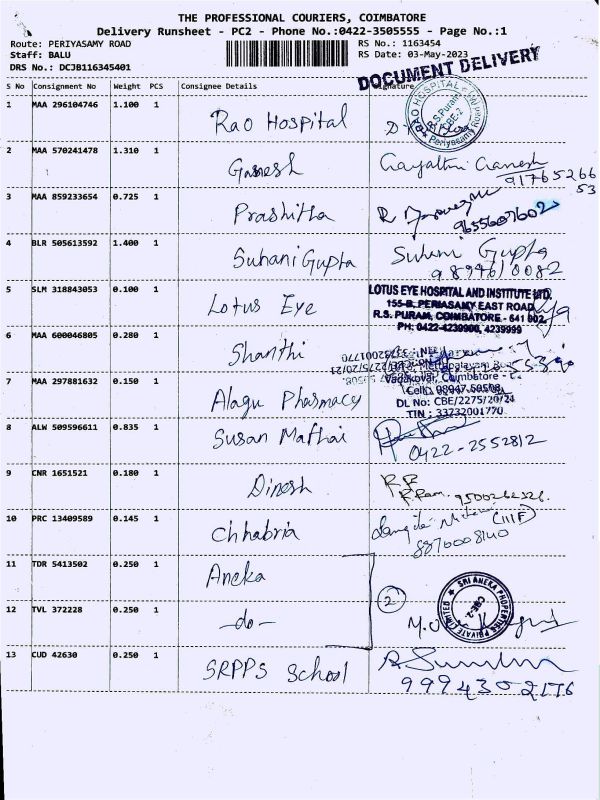 THE PROFESSIONAL COURIERS, COIMBATORE
Delivery Runsheet - PC2 - Phone No.:0422-3505555 - Page No.:1
Route: PERIYASAMY ROAD
RS No.: 1163454
Staff: BALU
RS Date: 03-May-2023
DRS No.: DCJB116345401
DOCUMENT DELIVERY
S No Consignment No Weight PCS Consignee Details Signature
1 MAA 296104746 1.100 1 Rao Hospital
RAO HOSPITAL
R.S.Puram
CBE-2
Periyasamy Road
2 MAA 570241478 1.310 1 Ganesh Gayathri Ganesh
91765266
53
3 MAA 859233654 0.725 1 Prashitha R
9655607602
4 BLR 505613592 1.400 1 Suhani Gupta Suhani Gupta
9894610082
5 SLM 318843053 0.100 1 Lotus Eye
LOTUS EYE HOSPITAL AND INSTITUTE LTD.
155-B, PERIASAMY EAST ROAD
R.S. PURAM, COIMBATORE - 641 002.
PH: 0422-4239900, 4239999
6 MAA 600046805 0.280 1 Shanthi
7 MAA 297881632 0.150 1 Alagu Pharmacy
Vadakovai, Coimbatore -
Cell: 98947 50508
DL No: CBE/2275/20/21
TIN : 33732001770
8 ALW 509596611 0.835 1 Susan Mathai
0422-2552812
9 CNR 1651521 0.180 1 Dinesh R.R
R.Ram. 9500262326.
10 PRC 13409589 0.145 1 Chhabria (IIIF)
8870008140
11 TDR 5413502 0.250 1 Aneka
2
SRI ANEKA PROPERTIES PRIVATE LIMITED
CBE-2
12 TVL 372228 0.250 1 -do-
13 CUD 42630 0.250 1 SRPPS School
9994302176